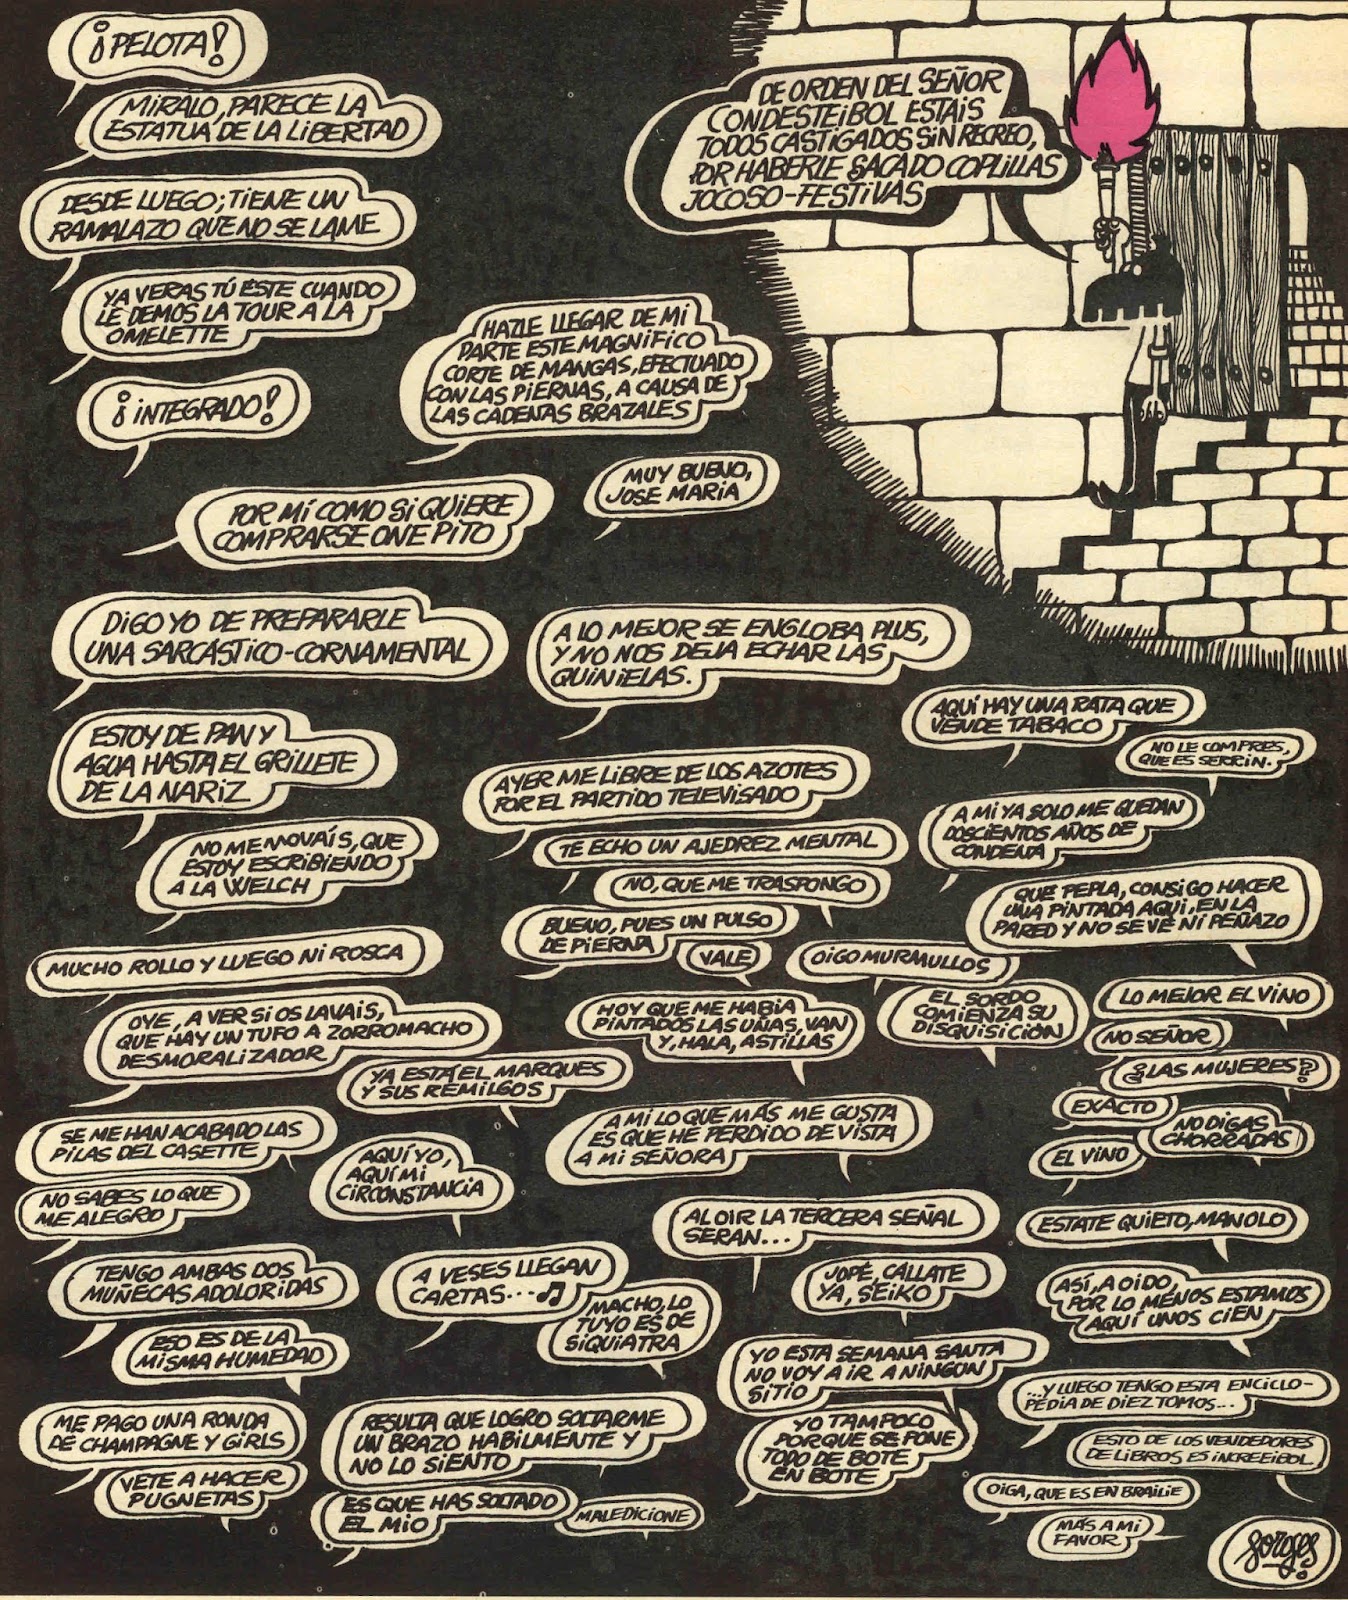 ¡PELOTA!
MIRALO, PARECE LA
ESTATUA DE LA LIBERTAD
DE ORDEN DEL SEÑOR
CONDESTEIBOL ESTAIS
TODOS CASTIGADOS SIN RECREO,
POR HABERLE SACADO COPLILLAS
JOCOSO-FESTIVAS
DESDE LUEGO; TIENE UN
RAMALAZO QUE NO SE LAME
YA VERAS TÚ ESTE CUANDO
LE DEMOS LA TOUR A LA
OMELETTE
¡INTEGRADO!
HAZLE LLEGAR DE MI
PARTE ESTE MAGNIFICO
CORTE DE MANGAS, EFECTUADO
CON LAS PIERNAS, A CAUSA DE
LAS CADENAS BRAZALES
MUY BUENO,
JOSE MARIA
POR MÍ COMO SI QUIERE
COMPRARSE ONE PITO
DIGO YO DE PREPARARLE
UNA SARCÁSTICO-CORNAMENTAL
A LO MEJOR SE ENGLOBA PLUS,
Y NO NOS DEJA ECHAR LAS
QUINIELAS.
AQUÍ HAY UNA RATA QUE
VENDE TABACO
NO LE COMPRES,
QUE ES SERRIN.
ESTOY DE PAN Y
AGUA HASTA EL GRILLETE
DE LA NARIZ
AYER ME LIBRE DE LOS AZOTES
POR EL PARTIDO TELEVISADO
A MI YA SOLO ME QUEDAN
DOSCIENTOS AÑOS DE
CONDENA
NO ME MOVAÍS, QUE
ESTOY ESCRIBIENDO
A LA WELCH
TE ECHO UN AJEDREZ MENTAL
NO, QUE ME TRASPONGO
BUENO, PUES UN PULSO
DE PIERNA
VALE
QUE PEPLA, CONSIGO HACER
UNA PINTADA AQUI, EN LA
PARED Y NO SE VE NI PEÑAZO
MUCHO ROLLO Y LUEGO NI ROSCA
OIGO MURMULLOS
EL SORDO
COMIENZA SU
DISQUISICIÓN
LO MEJOR EL VINO
NO SEÑOR
¿LAS MUJERES?
EXACTO
NO DIGAS
CHORRADAS
EL VINO
OYE, A VER SI OS LAVAIS,
QUE HAY UN TUFO A ZORROMACHO
DESMORALIZADOR
YA ESTÁ EL MARQUES
Y SUS REMILGOS
HOY QUE ME HABIA
PINTADOS LAS UÑAS, VAN
Y, HALA, ASTILLAS
A MI LO QUE MÁS ME GUSTA
ES QUE HE PERDIDO DE VISTA
A MI SEÑORA
SE ME HAN ACABADO LAS
PILAS DEL CASETTE
NO SABES LO QUE
ME ALEGRO
AQUÍ YO,
AQUÍ MI
CIRCONSTANCIA
AL OIR LA TERCERA SEÑAL
SERAN...
JOPÉ, CÁLLATE
YA, SEIKO
ESTATE QUIETO, MANOLO
ASÍ, A OIDO,
POR LO MENOS ESTAMOS
AQUÍ UNOS CIEN
TENGO AMBAS DOS
MUÑECAS ADOLORIDAS
ESO ES DE LA
MISMA HUMEDAD
A VESES LLEGAN
CARTAS...♫
MACHO, LO
TUYO ES DE
SIQUIATRA
YO ESTA SEMANA SANTA
NO VOY A IR A NINGÚN
SITIO
YO TAMPOCO
PORQUE SE PONE
TODO DE BOTE
EN BOTE
...Y LUEGO TENGO ESTA ENCICLO-
PEDIA DE DIEZ TOMOS...
ESTO DE LOS VENDEDORES
DE LIBROS ES INCREEIBOL
OIGA, QUE ES EN BRAILIE
MÁS A MI
FAVOR
ME PAGO UNA RONDA
DE CHAMPAGNE Y GIRLS
VETE A HACER
PUGNETAS
RESULTA QUE LOGRO SOLTARME
UN BRAZO HABILMENTE Y
NO LO SIENTO
ES QUE HAS SOLTADO
EL MIO
MALEDICIONE
Forges